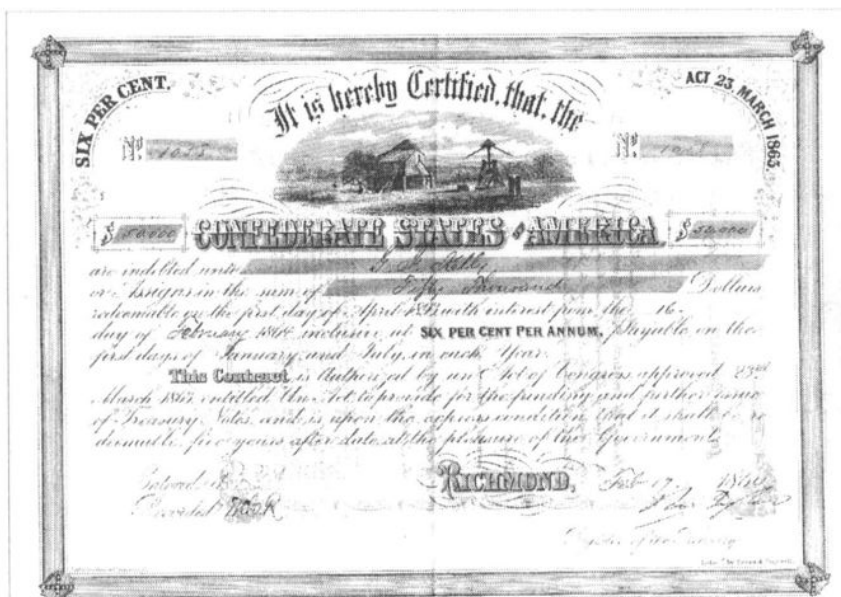 SIX PER CENT.
It is hereby Certified, that, the
ACT 23 MARCH 1863.
No. 1023
No. 1023
$ 50,000
CONFEDERATE STATES OF AMERICA
$ 50,000
are indebted unto Kelly
or Assigns in the sum of Fifty Thousand Dollars
redeemable on the first day of April with interest from the 16
day of February 1864 inclusive at SIX PER CENT PER ANNUM, Payable on the
first days of January and July in each Year.
This Contract is Authorized by an Act of Congress approved 23rd
March 1863, entitled An Act to provide for the funding and further issue
of Treasury Notes, and is upon the express condition that it shall be re
deemable five years after date, at the pleasure of the Government.
Entered
Recorded
RICHMOND, Feb 17 1864
Register of the Treasury